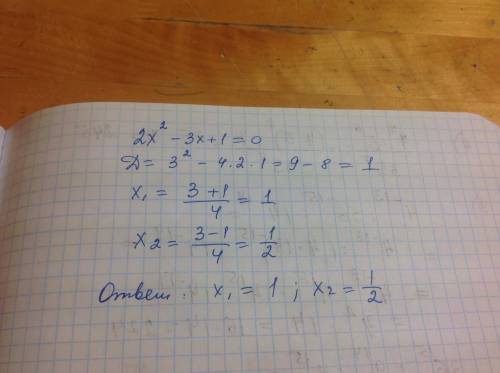 2x² - 3x + 1 = 0
D = 3² - 4·2·1 = 9 - 8 = 1
x₁ = (3+1)/4 = 1
x₂ = (3-1)/4 = 1/2
Ответ: x₁ = 1 ; x₂ = 1/2